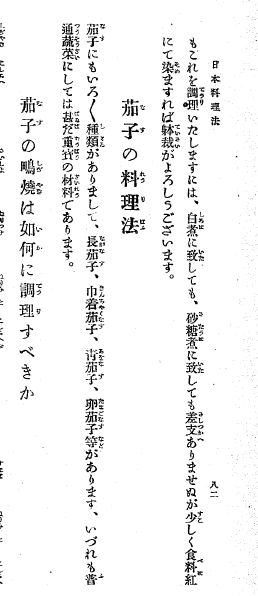 日本料理法
八二
もこれを調理いたしますには、白煮に致しても、砂糖煮に致しても差支ありませぬが少しく食料紅
にて染ますれば躰裁がよろしうございます。
茄子の料理法
茄子にもいろ〱種類がありまして、長茄子、巾着茄子、青茄子、卵茄子等があります、いづれも普
通蔬菜にしては甚だ重寳の材料であります。
茄子の鴫燒は如何に調理すべきか